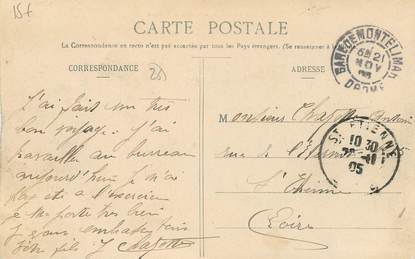 15f
CARTE POSTALE
La Correspondance au recto n'est pas acceptée par tous les Pays étrangers. (Se renseigner à
CORRESPONDANCE
(26)
ADRESSE
GARE DE MONTELIMAR
21
NOV
DROME
J'ai fait un très
bon voyage. J'ai
travaillé au bureau
aujourd'hui je n'ai
pas été à l'exercice
je me porte très bien
Je vous embrasse tous
Votre fils J Chapotte
Monsieur Chapotte
rue de
St Etienne
Loire
ST ETIENNE
10 30
05